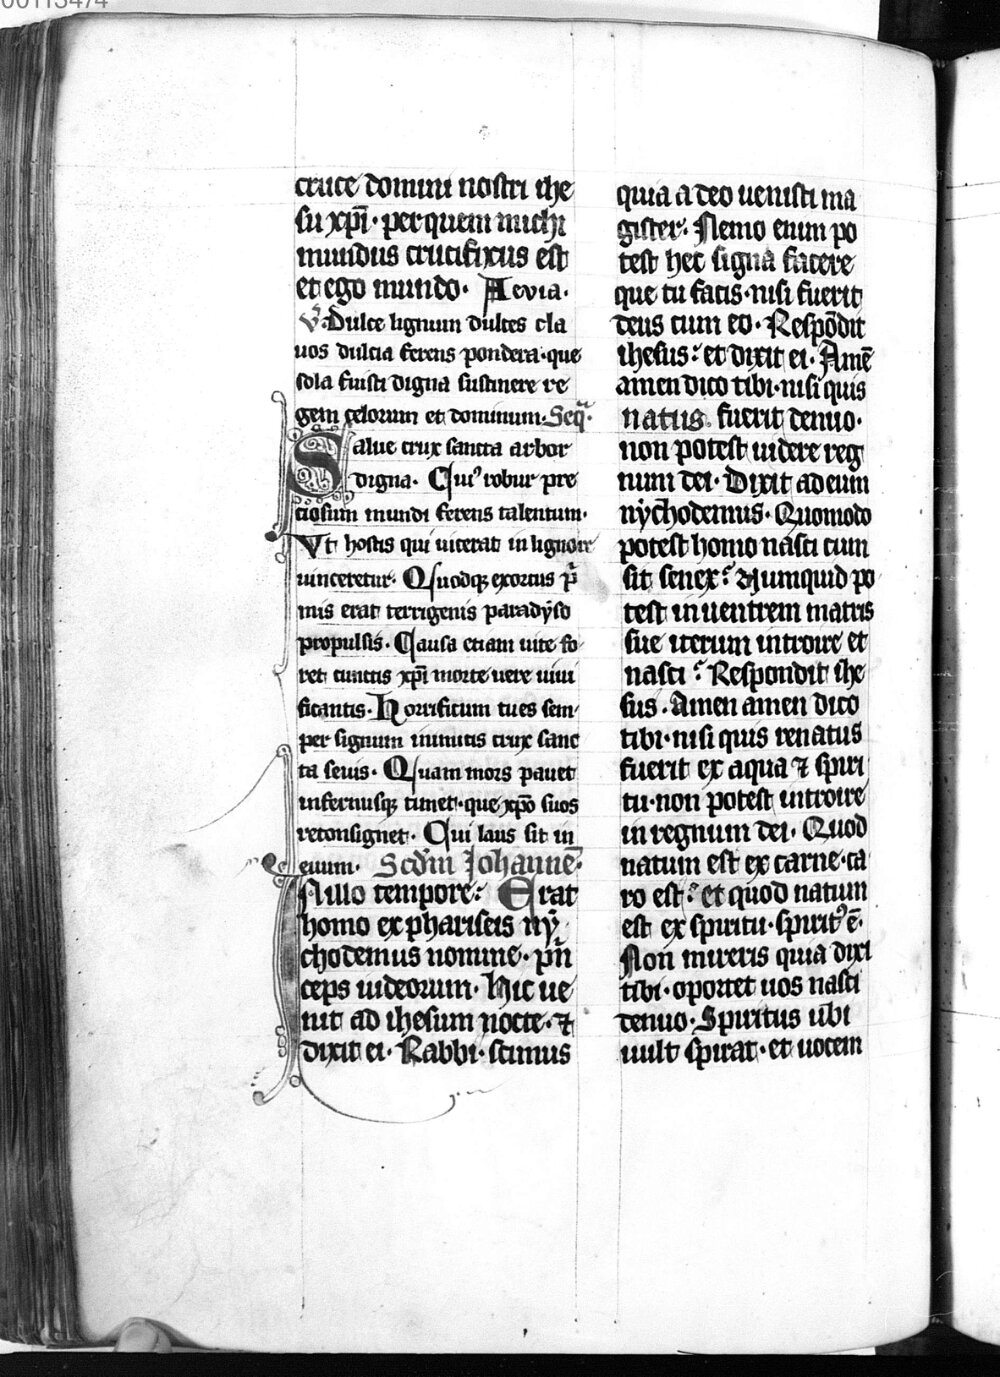 00113474
cruce domini nostri ihe
su xp̄i · per quem michi
mundus crucifixus est
et ego mundo · Aevia ·
V̄. Dulce lignum dulces cla
uos dulcia ferens pondera · que
sola fuisti digna sustinere re
gem celorum et dominum · Seq̄ ·
Salue crux sancta arbor
digna · Cuiꝰ robur pre
ciosum mundi ferens talentum ·
Vt hostis qui uicerat in ligno
uinceretur · Quodqꝫ exortus p̄
mis erat terrigenis paradyso
propulsis · Clausa etiam uite fo
ret cunctis xp̄i morte uere uiui
ficantis · Horrificum tu es sem
per signum inimicis crux sanc
ta seuis · Quam mors pauet
infernusqꝫ timet · que xp̄o suos
reconsignet · Cui laus sit in
euum · Scd̄m Johannē ·
In illo tempore : Erat
homo ex phariseis ny
chodemus nomine · p̄n
ceps iudeorum · Hic ue
nit ad ihesum nocte · ⁊
dixit ei · Rabbi · scimus
quia a deo uenisti ma
gister : Nemo enim po
test hec signa facere
que tu facis · nisi fuerit
deus cum eo · Respōdit
ihesus : et dixit ei · Amē
amen dico tibi · nisi quis
natus fuerit denuo ·
non potest uidere reg
num dei · Dixit ad eum
nychodemus · Quomodo
potest homo nasci cum
sit senex : Numquid po
test in uentrem matris
sue iterum introire et
nasci : Respondit ihe
sus · Amen amen dico
tibi · nisi quis renatus
fuerit ex aqua ⁊ spiri
tu · non potest introire
in regnum dei · Quod
natum est ex carne · ca
ro est : et quod natum
est ex spiritu · spiritꝰ ē ·
Non mireris quia dixi
tibi · oportet uos nasci
denuo · Spiritus ubi
uult spirat · et uocem